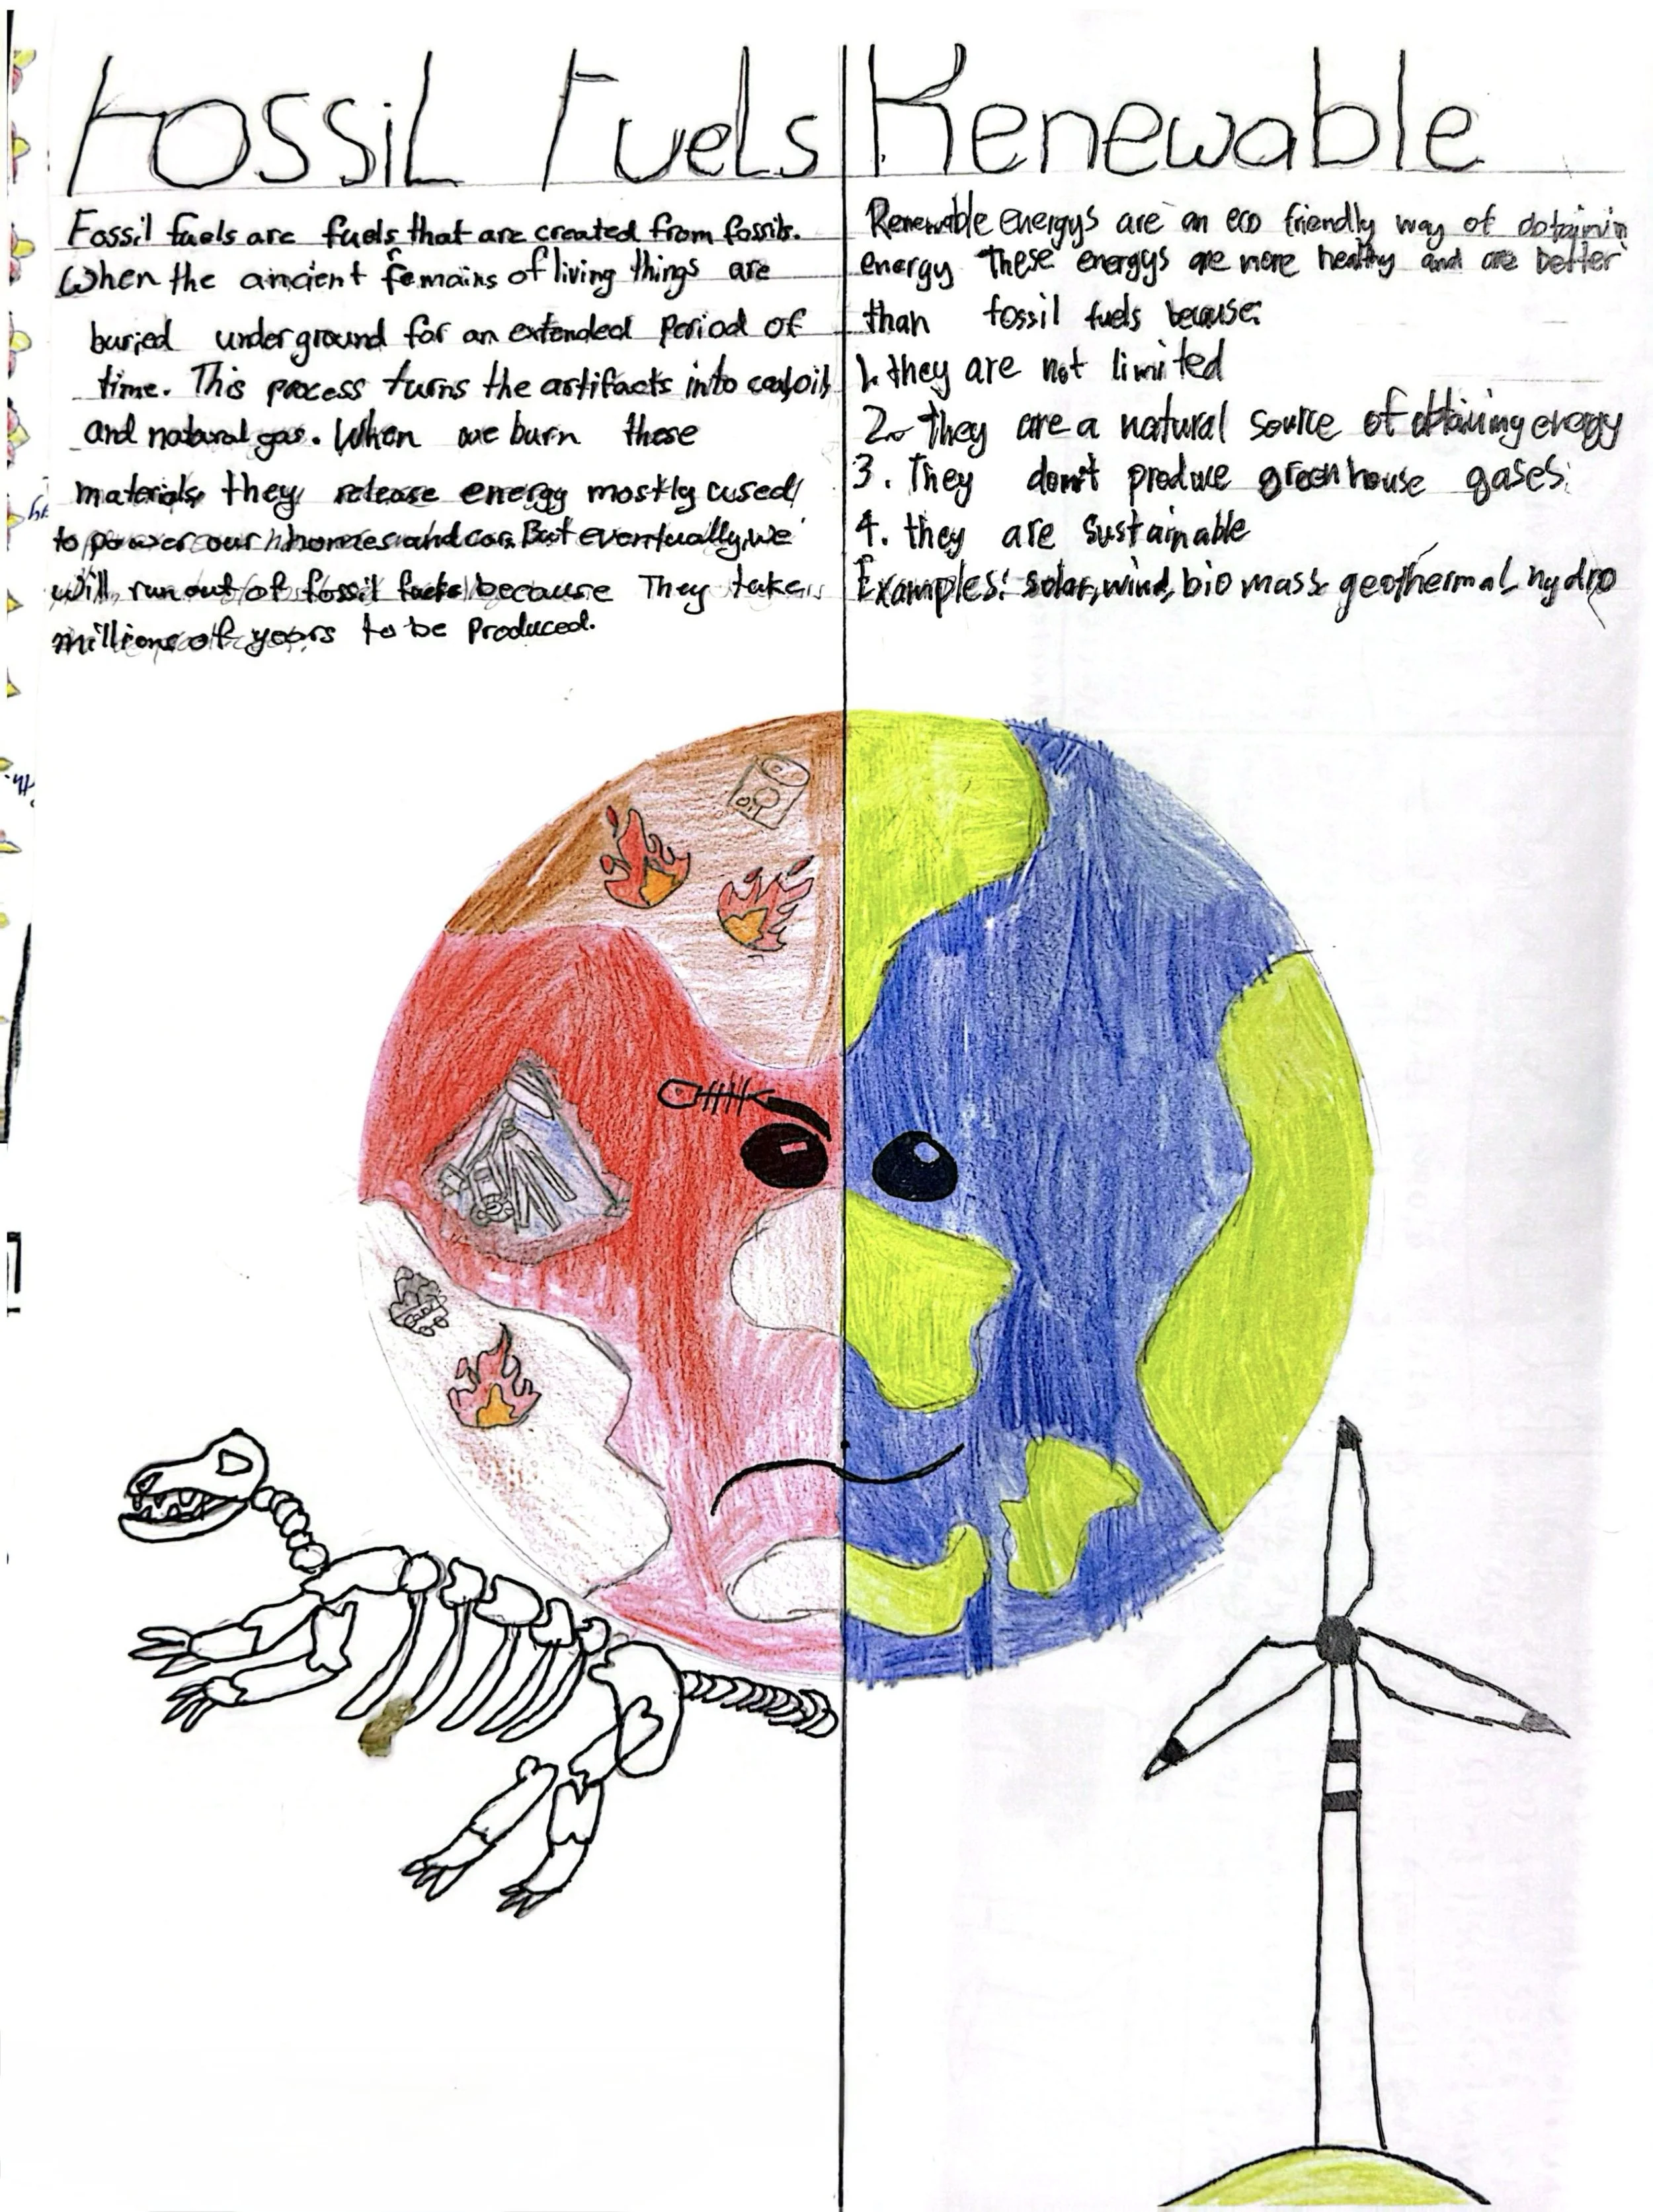 Fossil Fuels
Fossil fuels are fuels that are created from fossils.
When the ancient remains of living things are
buried underground for an extended period of
time. This process turns the artifacts into coal,oil,
and natural gas. When we burn these
materials, they release energy mostly used
to power our homes and cars. But eventually, we
will run out of fossil fuels because They take
millions of years to be produced.
Renewable
Renewable energys are an eco friendly way of obtainin
energy These energys are more healthy and are better
than fossil fuels because:
1. they are not limited
2. They are a natural source of obtaining energy
3. They don't produce greenhouse gases.
4. they are sustainable
Examples: solar, wind, bio mass geothermal, hydro